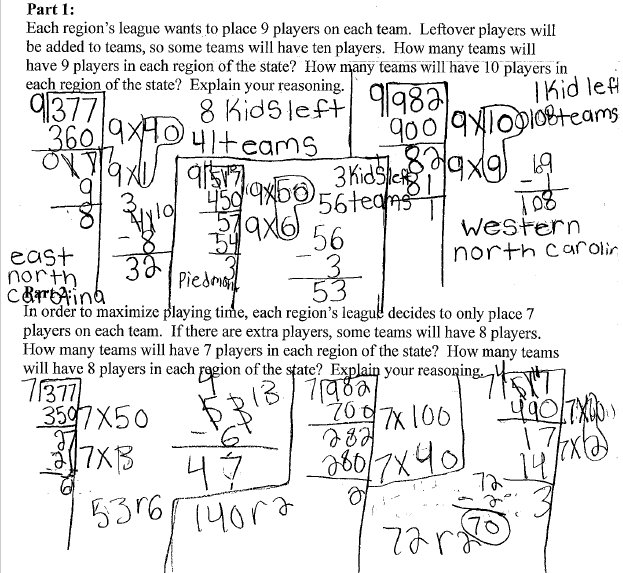 Part 1:
Each region's league wants to place 9 players on each team. Leftover players will
be added to teams, so some teams will have ten players. How many teams will
have 9 players in each region of the state? How many teams will have 10 players in
each region of the state? Explain your reasoning.
9 377
360 9x40
017 9x1
9
8
8 kids left
41 teams
3
4110
- 8
32
east
north
carolina
9 517
450 9x50
57 9x6
54
3
3 kids left
56 teams
56
- 3
53
Piedmont
9 982
900 9x100
82 9x9
81
1
1 kid left
108 teams
109
- 1
108
western
north carolin
Part 2:
In order to maximize playing time, each region's league decides to only place 7
players on each team. If there are extra players, some teams will have 8 players.
How many teams will have 7 players in each region of the state? How many teams
will have 8 players in each region of the state? Explain your reasoning.
7 377
350 7x50
27 7x3
21
6
53r6
4
5 3 13
- 6
47
7 982
700 7x100
282
280 7x40
2
140r2
7 517
490
17
14
3
72
- 2
70
72r2